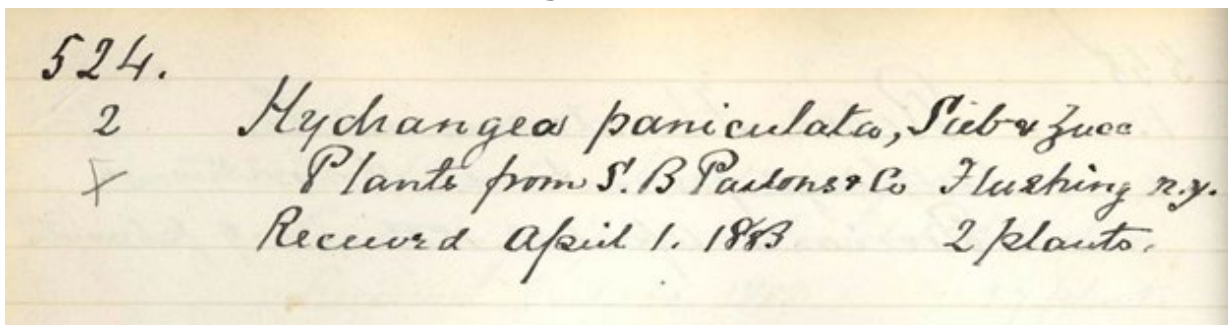 524.
2 Hydrangea paniculata, Sieb & Zucc
X Plants from S. B Parsons & Co Flushing n.y.
Received April 1. 1883 2 plants.